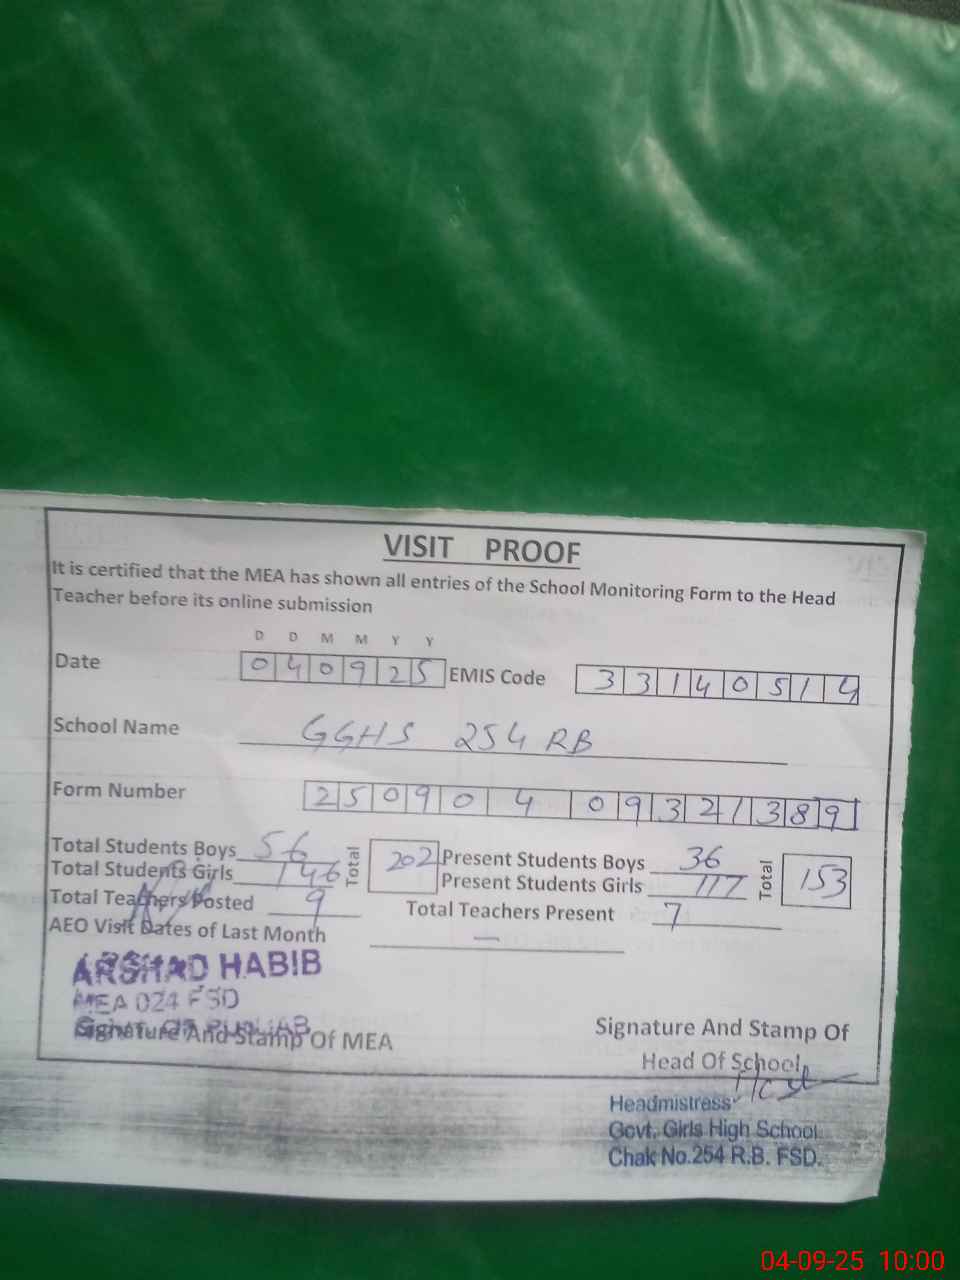 VISIT PROOF
It is certified that the MEA has shown all entries of the School Monitoring Form to the Head
Teacher before its online submission
D D M M Y Y
Date 040925 EMIS Code 33140514
School Name GGHS 254 RB
Form Number 25090409321389
Total Students Boys 56 Total 202 Present Students Boys 36 Total 153
Total Students Girls 146 Present Students Girls 117
Total Teachers Posted 9 Total Teachers Present 7
AEO Visit Dates of Last Month —
ARSHAD HABIB
MEA 024 FSD
Signature And Stamp Of MEA
Signature And Stamp Of
Head Of School
Headmistress
Govt. Girls High School
Chak No.254 R.B. FSD.
04-09-25 10:00